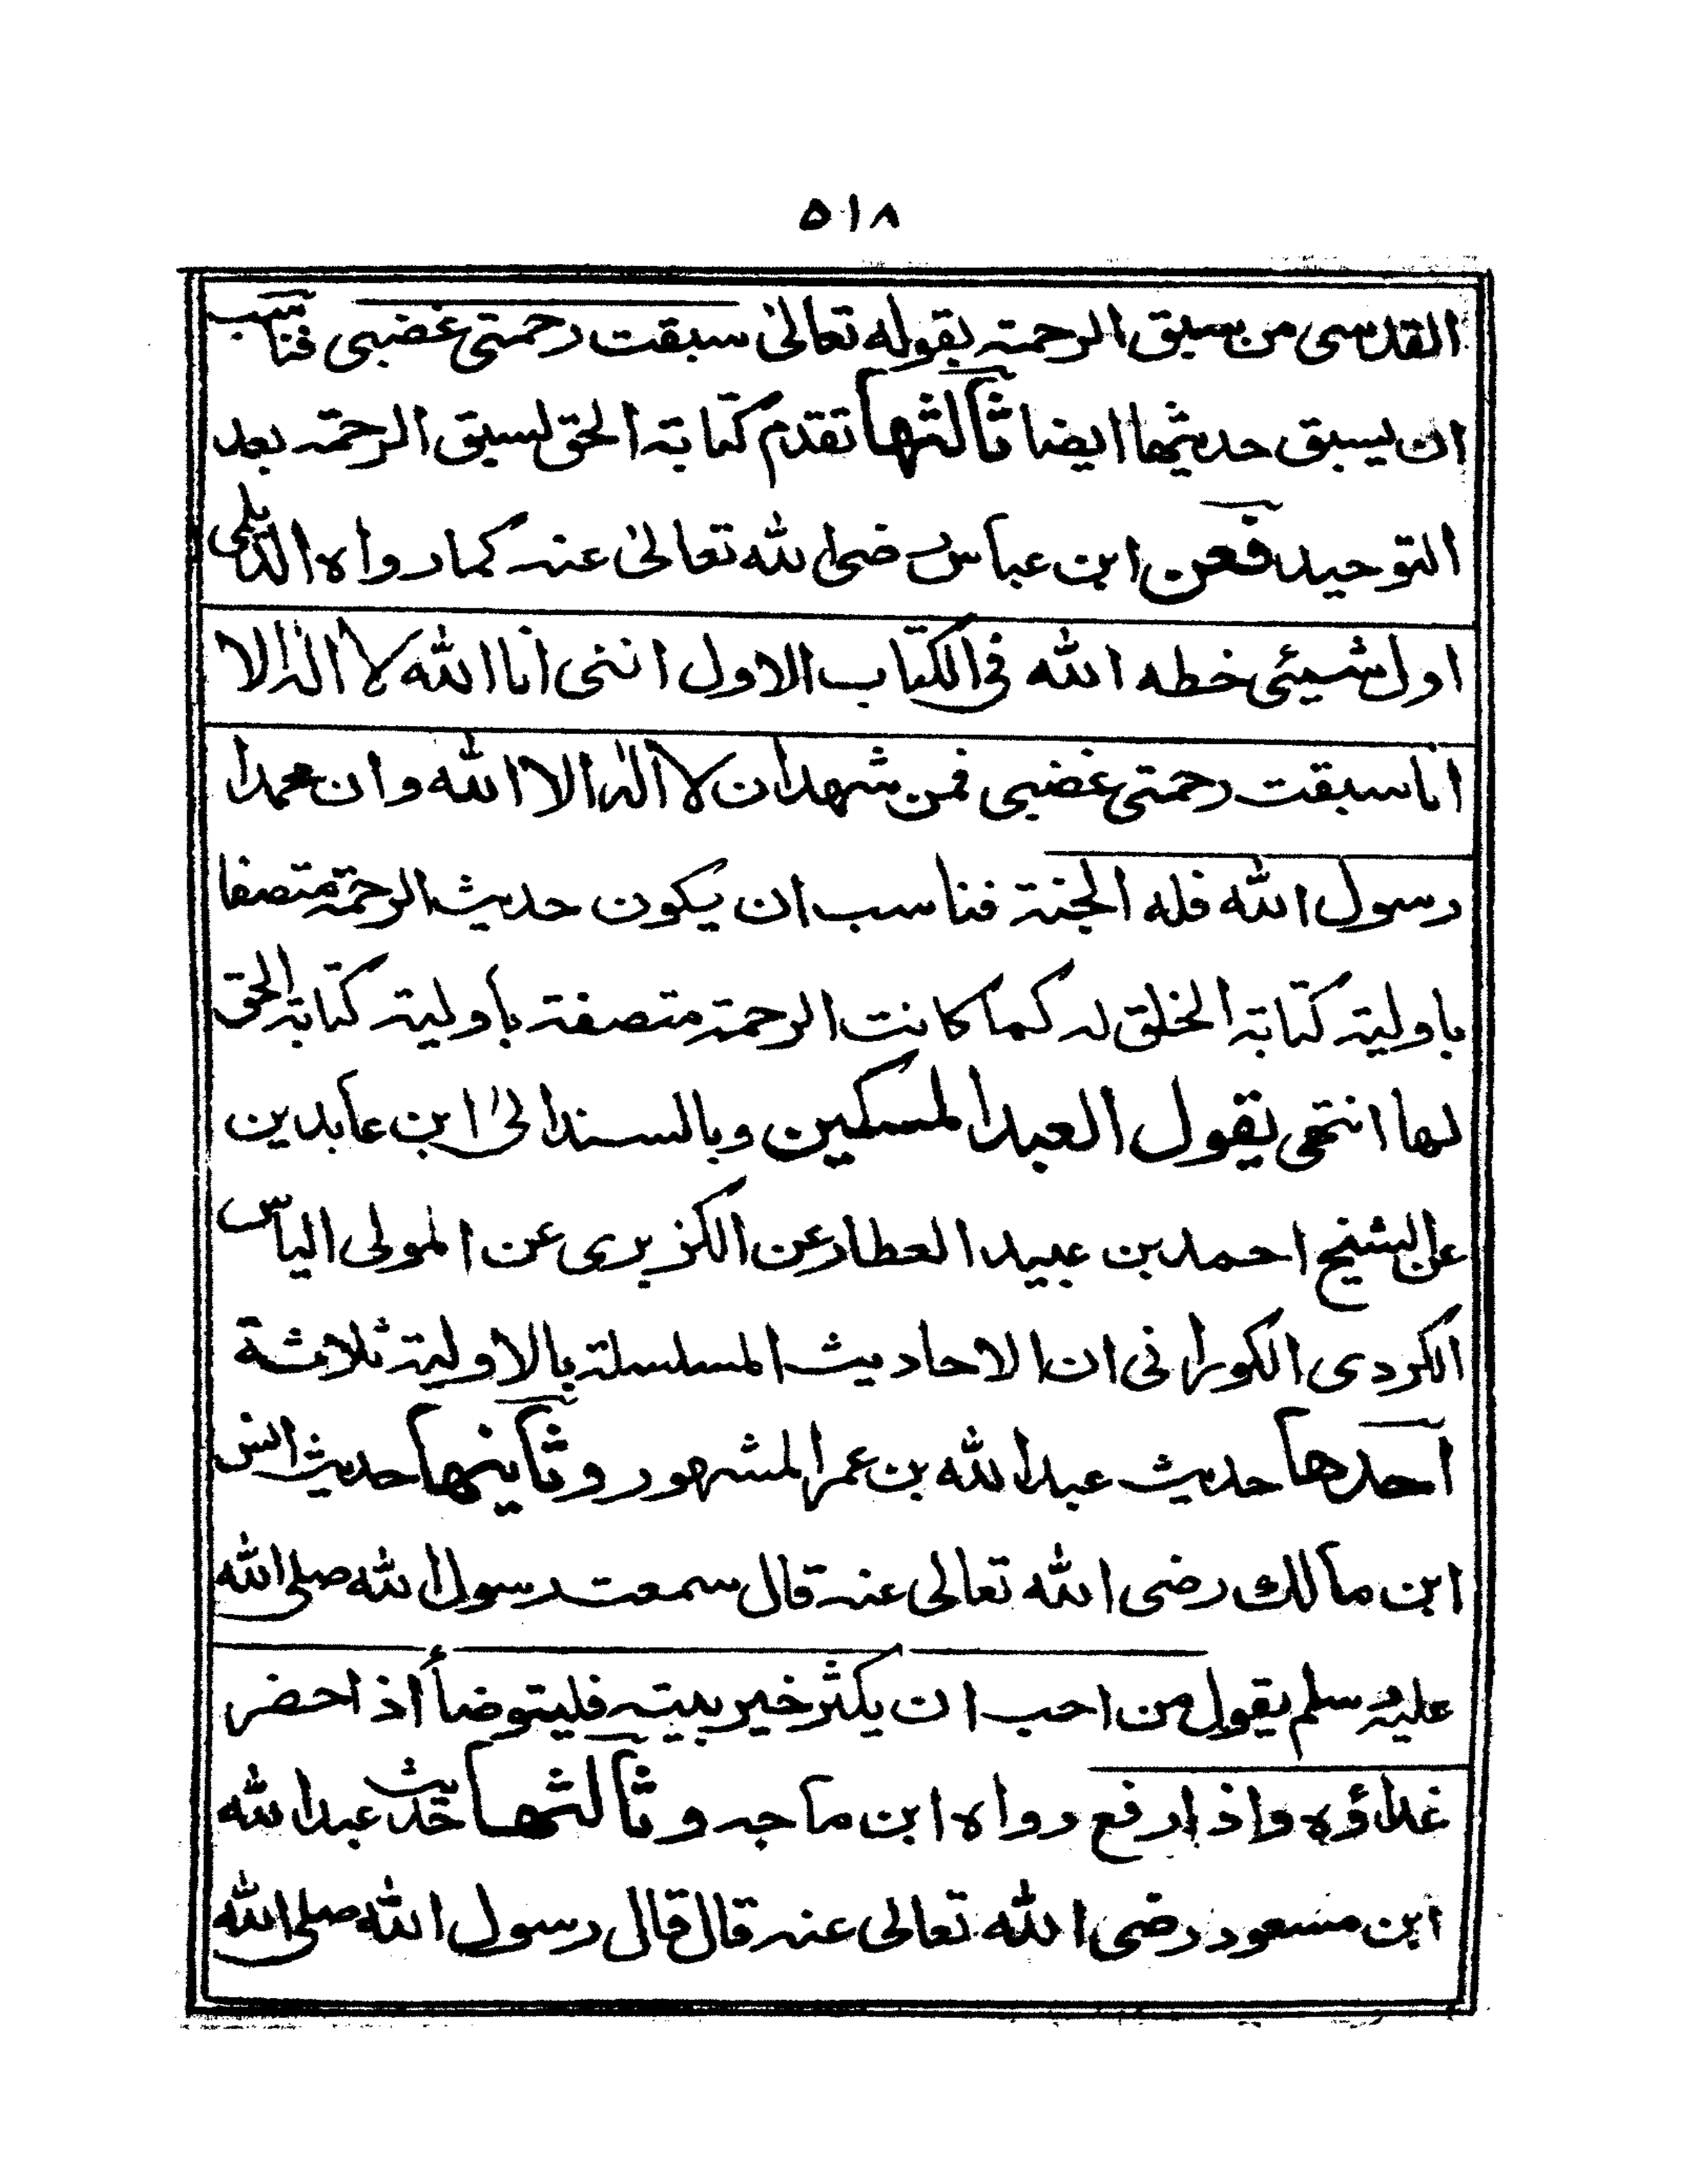 ٥١٨
القدسی من سبق الرحمته بقوله تعالیٰ سبقت رحمتی غضبی فناسب
ان یسبق حدیثھا ایضا ثالثھا تقدم کتابتہ الحق لسبق الرحمته بعد
التوحید فعن ابن عباس رضی اللہ تعالیٰ عنہ کما رواہ الدیلمی
اول شیئی خطه اللہ فی الکتاب الاول اننی انا اللہ لا الٰہ الا
انا سبقت رحمتی غضبی فمن شھد ان لا الٰہ الا اللہ وان محمدا
رسول اللہ فله الجنة فناسب ان یکون حدیث الرحمة متصفا
باولیتہ کتابتہ الخلق لہ کما کانت الرحمة متصفة بأولیتہ کتابتہ الحق
لھا انتھی یقول العبد المسکین وبالسند الیٰ ابن عابدین
عن الشیخ احمد بن عبید العطار عن الکزبری عن المولی الیاس
الکردی الکورانی ان الاحادیث المسلسلة بالاولیة ثلاثة
احدھا حدیث عبد اللہ بن عمر المشھور وثانیھا حدیث انس
ابن مالک رضی اللہ تعالی عنہ قال سمعت رسول اللہ صلی اللہ
علیہ وسلم یقول من احب ان یکثر خیر بیتہ فلیتوضأ اذا حضر
غداؤه واذا رفع رواہ ابن ماجہ وثالثھا حدیث عبد اللہ
ابن مسعود رضی اللہ تعالی عنہ قال قال رسول اللہ صلی اللہ